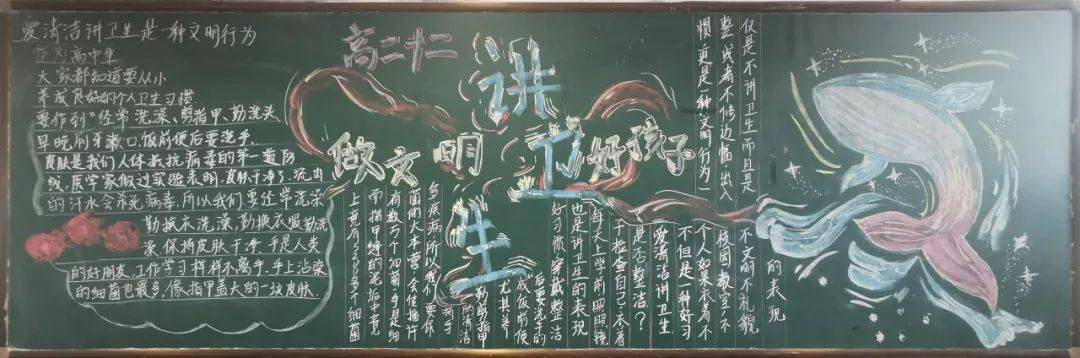 爱清洁讲卫生是一种文明行为
作为高中生
大家都知道要从小
养成良好的个人卫生习惯
要作到“经常洗澡、剪指甲、勤洗头
早晚刷牙漱口、饭前便后要洗手.
皮肤是我们人体抵抗病毒的第一道防
线,医学家做过实验表明,皮肤干净了,流出
的汗水会杀死病毒.所以我们要经常洗澡
勤换衣服勤洗
澡.保持皮肤干净.手是人类
的好朋友,工作学习样样不离手.手上沾染
的细菌也最多,像指甲盖大的一块皮肤
高二十二
讲
卫
生
做文明
好孩子
上竟有
多个细菌
而指甲缝的泥垢中竟
有数万个细菌.手是细
菌的大本营,会传播许
多疾病,所以我们要保
勤剪指甲
尤其养
成饭前便
后要洗手的
好习惯.穿戴整洁
也是讲卫生的表现
每天上学前照照镜
子检查自己.衣着
是否整洁?
爱清洁讲卫生
不但是一种好习
惯更是一种文明行为一
个人如果衣着不
整或者不修边幅出入
校园教室.不
仅是不讲卫生而且是
不文明不礼貌
的表现